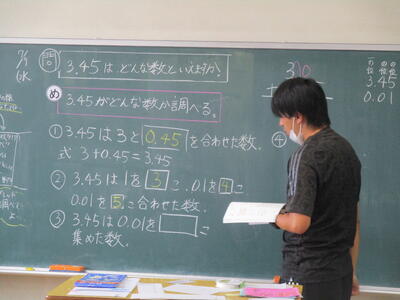 問 3.45はどんな数といえますか?
め 3.45がどんな数か調べる。
①3.45は3と0.45を合わせた数.
式 3+0.45=3.45
②3.45は1を3こ、0.1を4こ
0.01を5こ合わせた数.
③3.45は0.01を□こ
集めた数.
④
の位 の位 の位
3.45
0.01